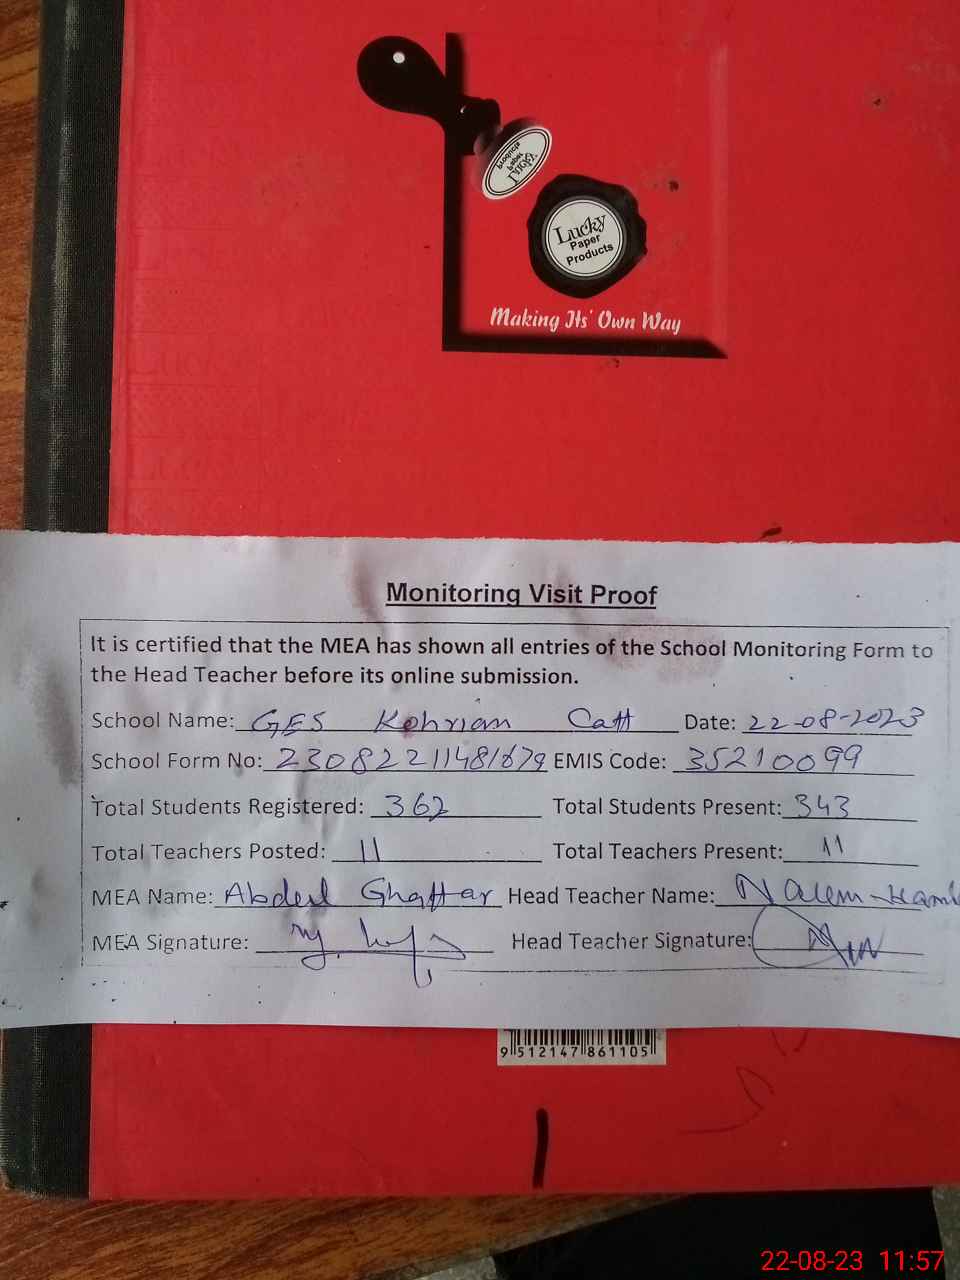 Lucky
Paper
Products
Lucky
Paper
Products
Making Its' Own Way
Monitoring Visit Proof
It is certified that the MEA has shown all entries of the School Monitoring Form to
the Head Teacher before its online submission.
School Name: GES Kohrian Catt Date: 22-08-2023
School Form No: 23082211481679 EMIS Code: 35210099
Total Students Registered: 362 Total Students Present: 343
Total Teachers Posted: 11 Total Teachers Present: 11
MEA Name: Abdul Ghaffar Head Teacher Name:
MEA Signature: Head Teacher Signature:
9 512147 861105
22-08-23 11:57